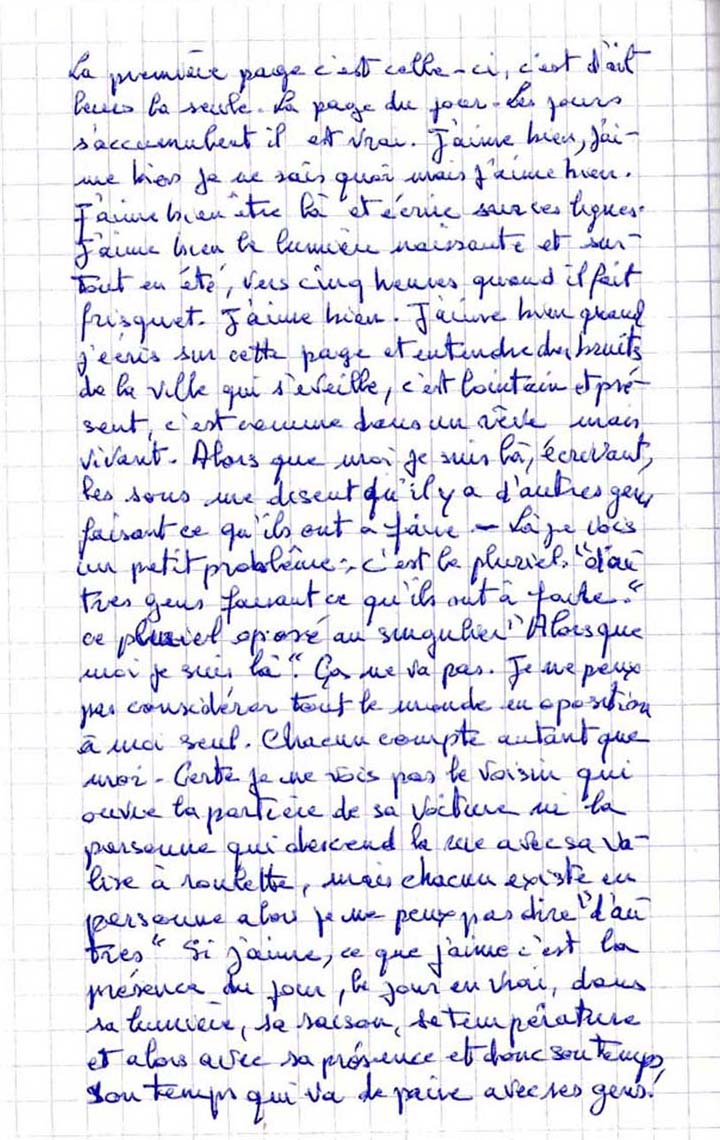 La première page c'est celle-ci, c'est d'ail
leurs la seule. La page du jour. Les jours
s'accumulent il est vrai. J'aime bien, j'ai-
me bien je ne sais quoi mais j'aime bien.
J'aime bien être là et écrire sur ces lignes.
J'aime bien la lumière naissante et sur-
tout en été, vers cinq heures quand il fait
frisquet. J'aime bien. J'aime bien quand
j'écris sur cette page et entendre des bruits
de la ville qui s'éveille, c'est lointain et pré-
sent, c'est comme dans un rêve mais
vivant. Alors que moi je suis là, écrivant,
les sons me disent qu'il y a d'autres gens
faisant ce qu'ils ont à faire - Là je vois
un petit problème : c'est le pluriel. "d'au
tres gens faisant ce qu'ils ont à faire."
ce pluriel oposé au singulier "Alors que
moi je suis là". Ça ne va pas. Je ne peux
pas considérer tout le monde en oposition
à moi seul. Chacun compte autant que
moi - Certe je ne vois pas le voisin qui
ouvre la portière de sa voiture ni la
personne qui descend la rue avec sa va-
lise à roulette, mais chacun existe en
personne alors je ne peux pas dire "d'au
tres" Si j'aime, ce que j'aime c'est la
présence du jour, le jour en vrai, dans
sa lumière, sa saison, sa température
et alors avec sa présence et donc son temps,
son temps qui va de paire avec ses gens.